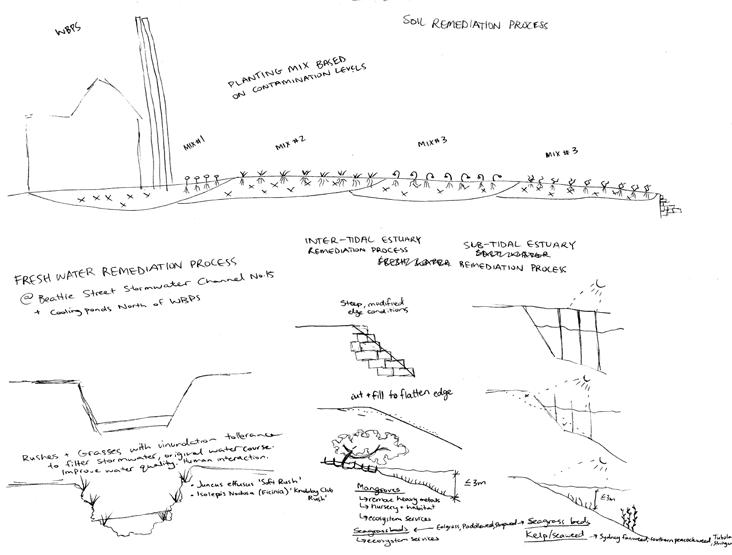 SOIL REMEDIATION PROCESS
WBPS
PLANTING MIX BASED
ON CONTAMINATION LEVELS
MIX #1
MIX #2
MIX #3
MIX #3
FRESH WATER REMEDIATION PROCESS
@ Beattie Street Stormwater Channel No.15
+ Cooling ponds North of WBPS
Rushes + Grasses with inundation tolerance
to filter stormwater, original water course.
Improve water quality. Human interaction.
• Juncus effusus 'Soft Rush'
• Isolepis Nodosa (Ficinia) 'Knobby Club
Rush'
INTER-TIDAL ESTUARY
REMEDIATION PROCESS
Steep, modified
edge conditions
cut + fill to flatten edge
≤3m
Mangroves
↳ remove heavy metals
↳ nursery + habitat
↳ ecosystem services
Seagrass beds ← Eelgrass, Paddleweed,
↳ ecosystem services
SUB-TIDAL ESTUARY
REMEDIATION PROCESS
≤3m
→ Seagrass beds
Kelp/seaweed → Sydney